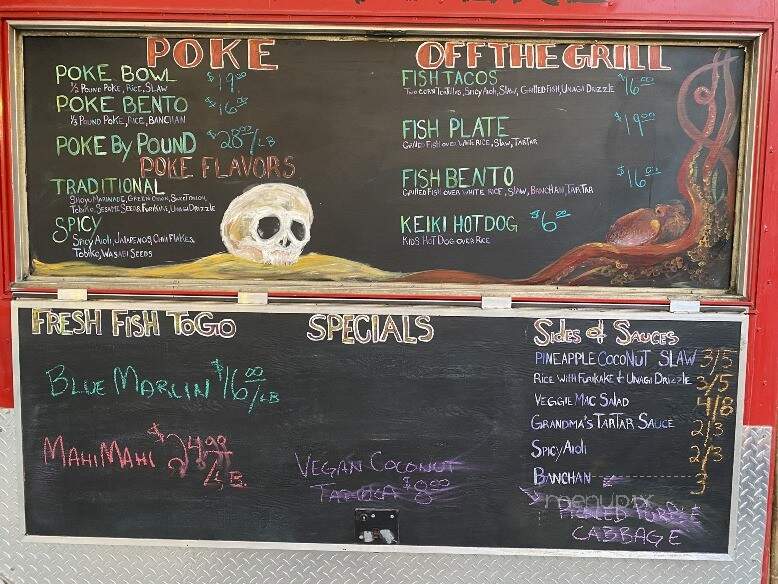 POKE
POKE BOWL $19.00
1/2 POUND POKE, RICE, SLAW
POKE BENTO $16.00
1/3 POUND POKE, RICE, BANCHAN
POKE BY POUND $28.00/LB
POKE FLAVORS
TRADITIONAL
SHOYU MARINADE, GREEN ONION, SWEET ONION,
TOBIKO, SESAME SEEDS, FURIKAKE, UNAGI DRIZZLE
SPICY
SPICY AIOLI, JALAPENOS, CHILI FLAKES,
TOBIKO, WASABI SEEDS
OFF THE GRILL
FISH TACOS $16.00
TWO CORN TORTILLAS, SPICY AIOLI, SLAW, GRILLED FISH, UNAGI DRIZZLE
FISH PLATE $19.00
GRILLED FISH OVER WHITE RICE, SLAW, TARTAR
FISH BENTO $16.00
GRILLED FISH OVER WHITE RICE, SLAW, BANCHAN, TARTAR
KEIKI HOT DOG $6.00
KIDS HOT DOG OVER RICE
FRESH FISH TO GO
BLUE MARLIN $16.00/LB
MAHI MAHI $24.99/LB.
SPECIALS
VEGAN COCONUT
TAPIOCA $8.00
SIDES of SAUCES
PINEAPPLE COCONUT SLAW 3/5
RICE WITH FURIKAKE & UNAGI DRIZZLE 3/5
VEGGIE MAC SALAD 4/8
GRANDMA'S TARTAR SAUCE 2/3
SPICY AIOLI 2/3
BANCHAN 3
menupix
PICKLED PURPLE
CABBAGE